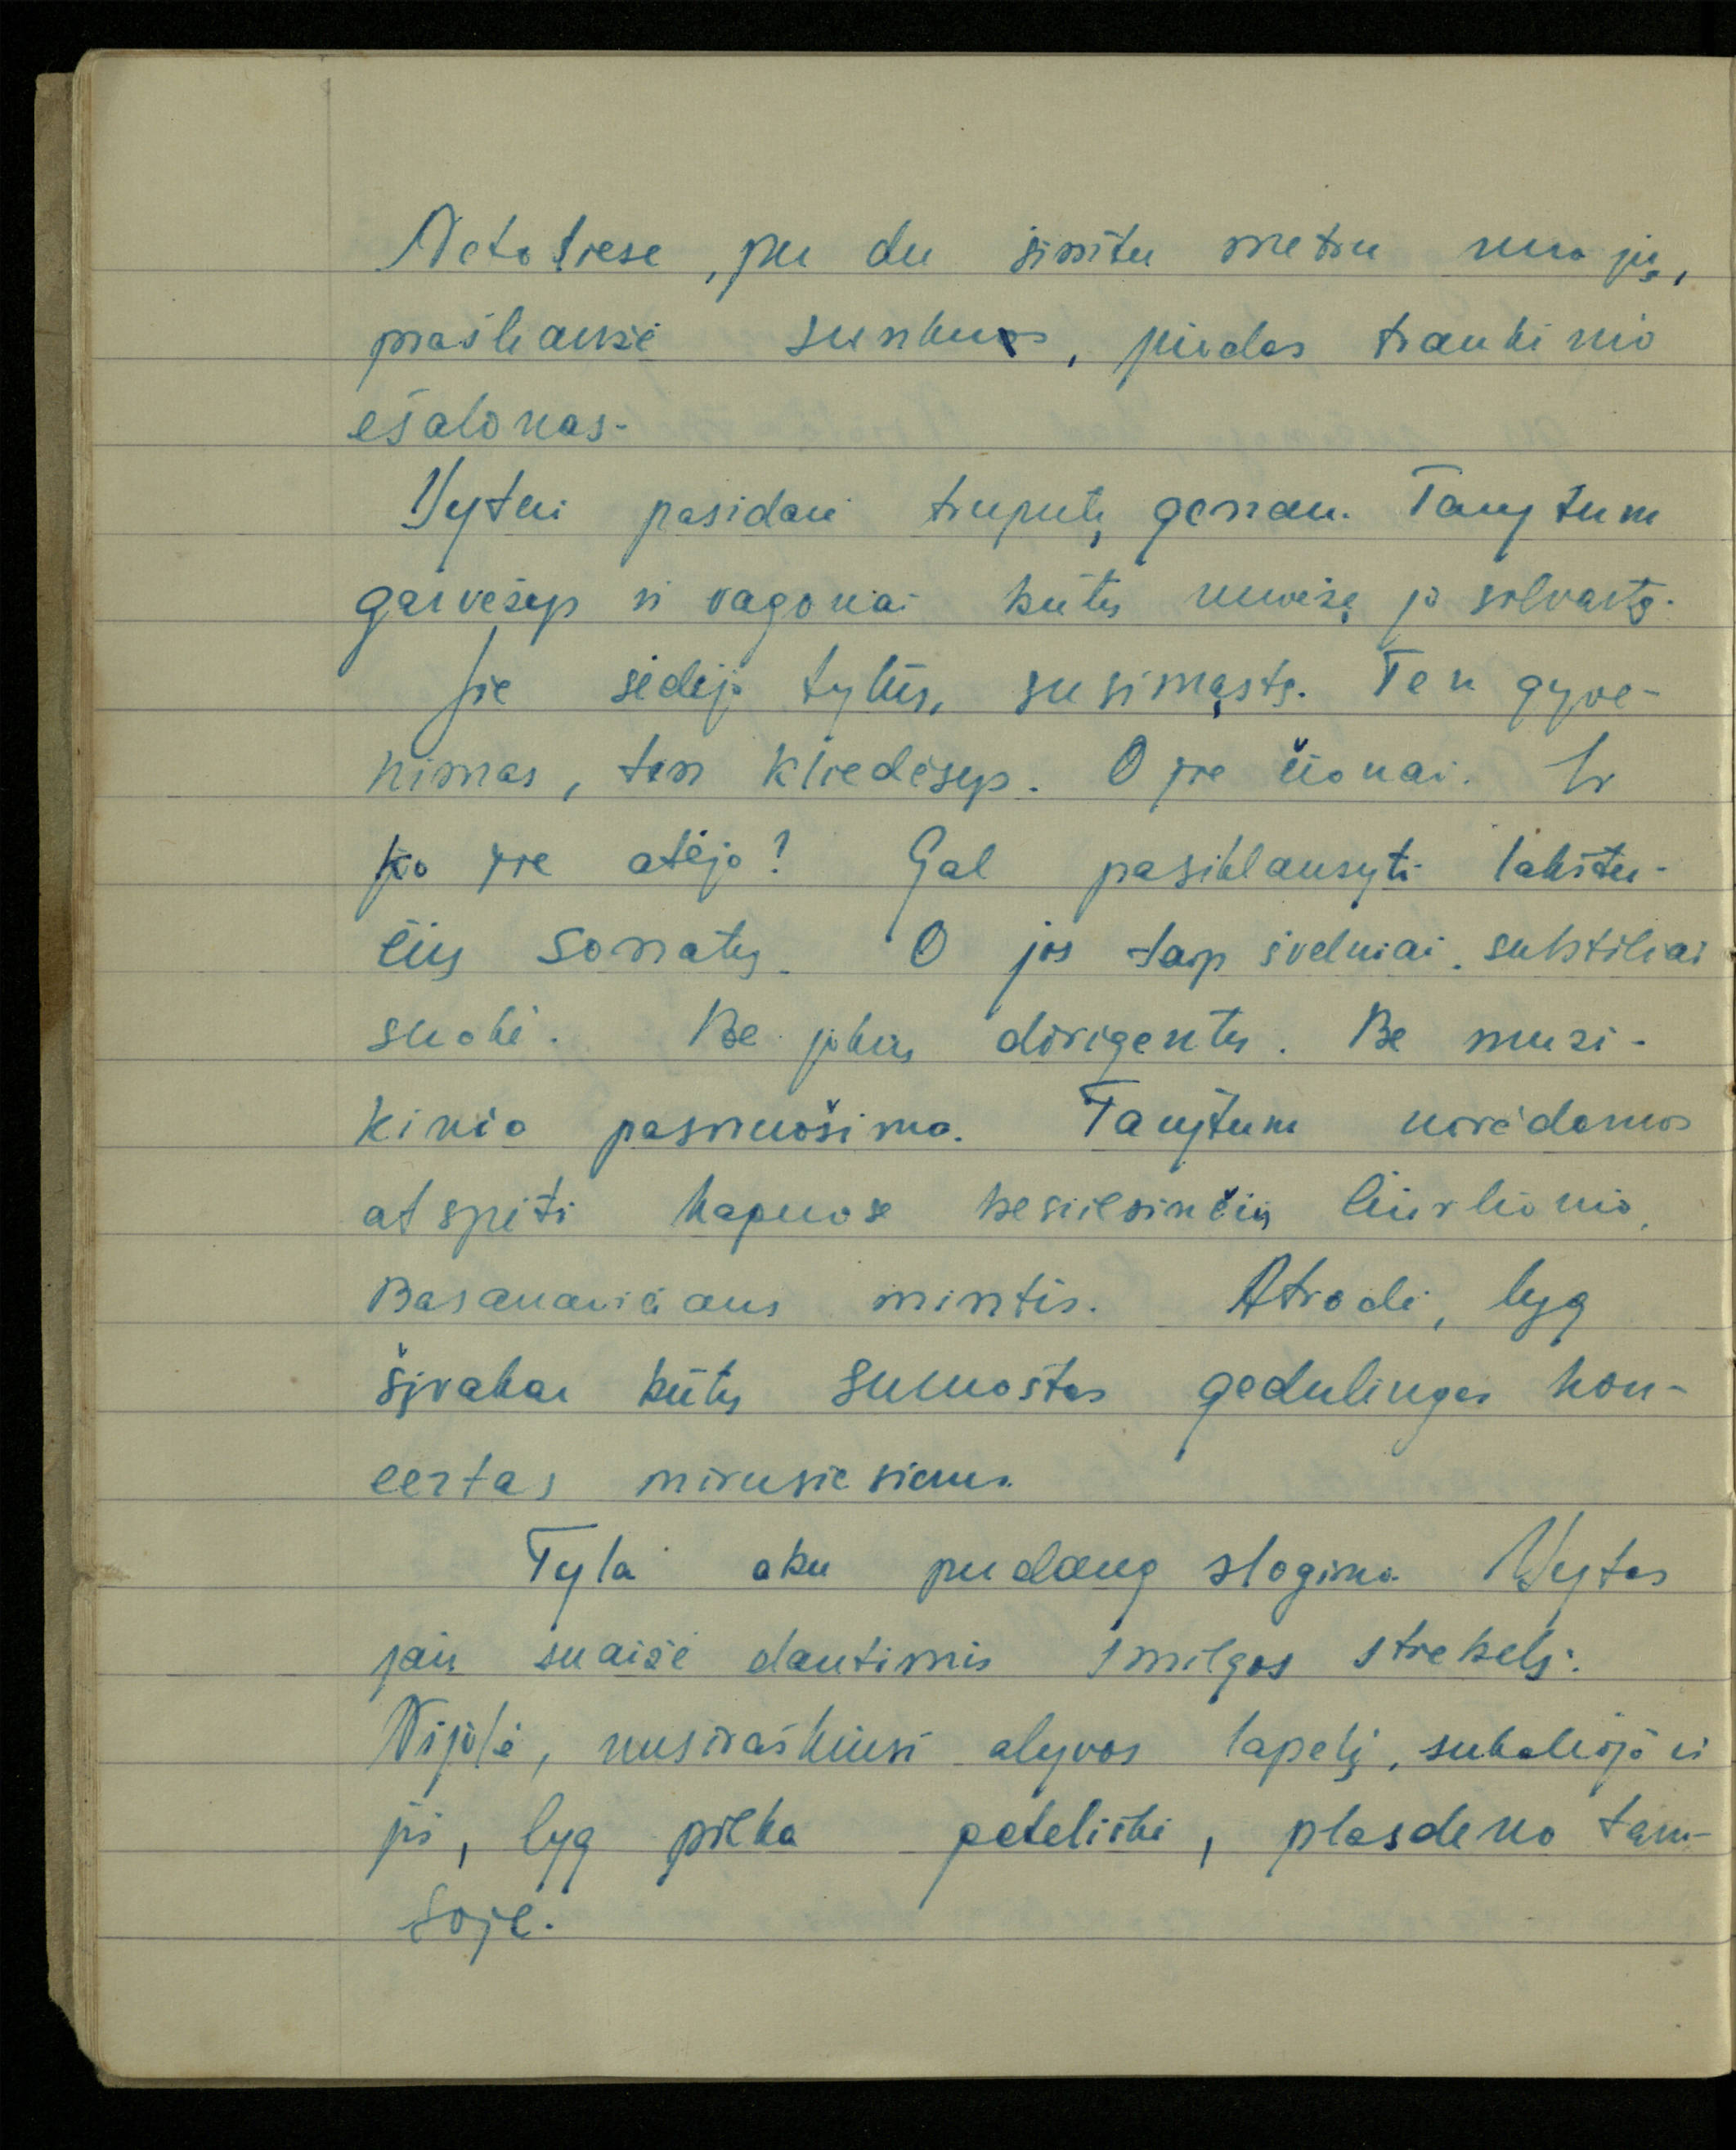 Netoliese, per du šimtu metru nuo jų,
prašliaužė sunkus, juodas traukinio
ešalonas.
Vytui pasidarė truputį geriau. Tarytum
garvežys ir vagonai būtų nuvežę jo slvartą.
Jie sėdėjo tylūs, susimąstę. Ten gyve-
nimas, ten kliedesys. O jie čionai. Ir
ko jie atėjo? Gal pasiklausyti lakštu-
čių sonatų. O jos taip švelniai, subtiliai
suokė. Be jokių dirigentų. Be muzi-
kinio pasiruošimo. Tarytum norėdamos
atspėti kapuose besiilsinčių Čiurlionio,
Basanavičiaus mintis. Atrodė, lyg
šįvakar būtų suruoštas gedulingas kon-
certas mirusiesiems.
Tyla aku perdaug slogino. Vytas
jau suaižė dantimis smilgos stiebelį.
Nijolė, nusiraškiusi alyvos lapelį, sukaliojo ir
jis, lyg pilka peteliškė, plasdeno tam-
soje.